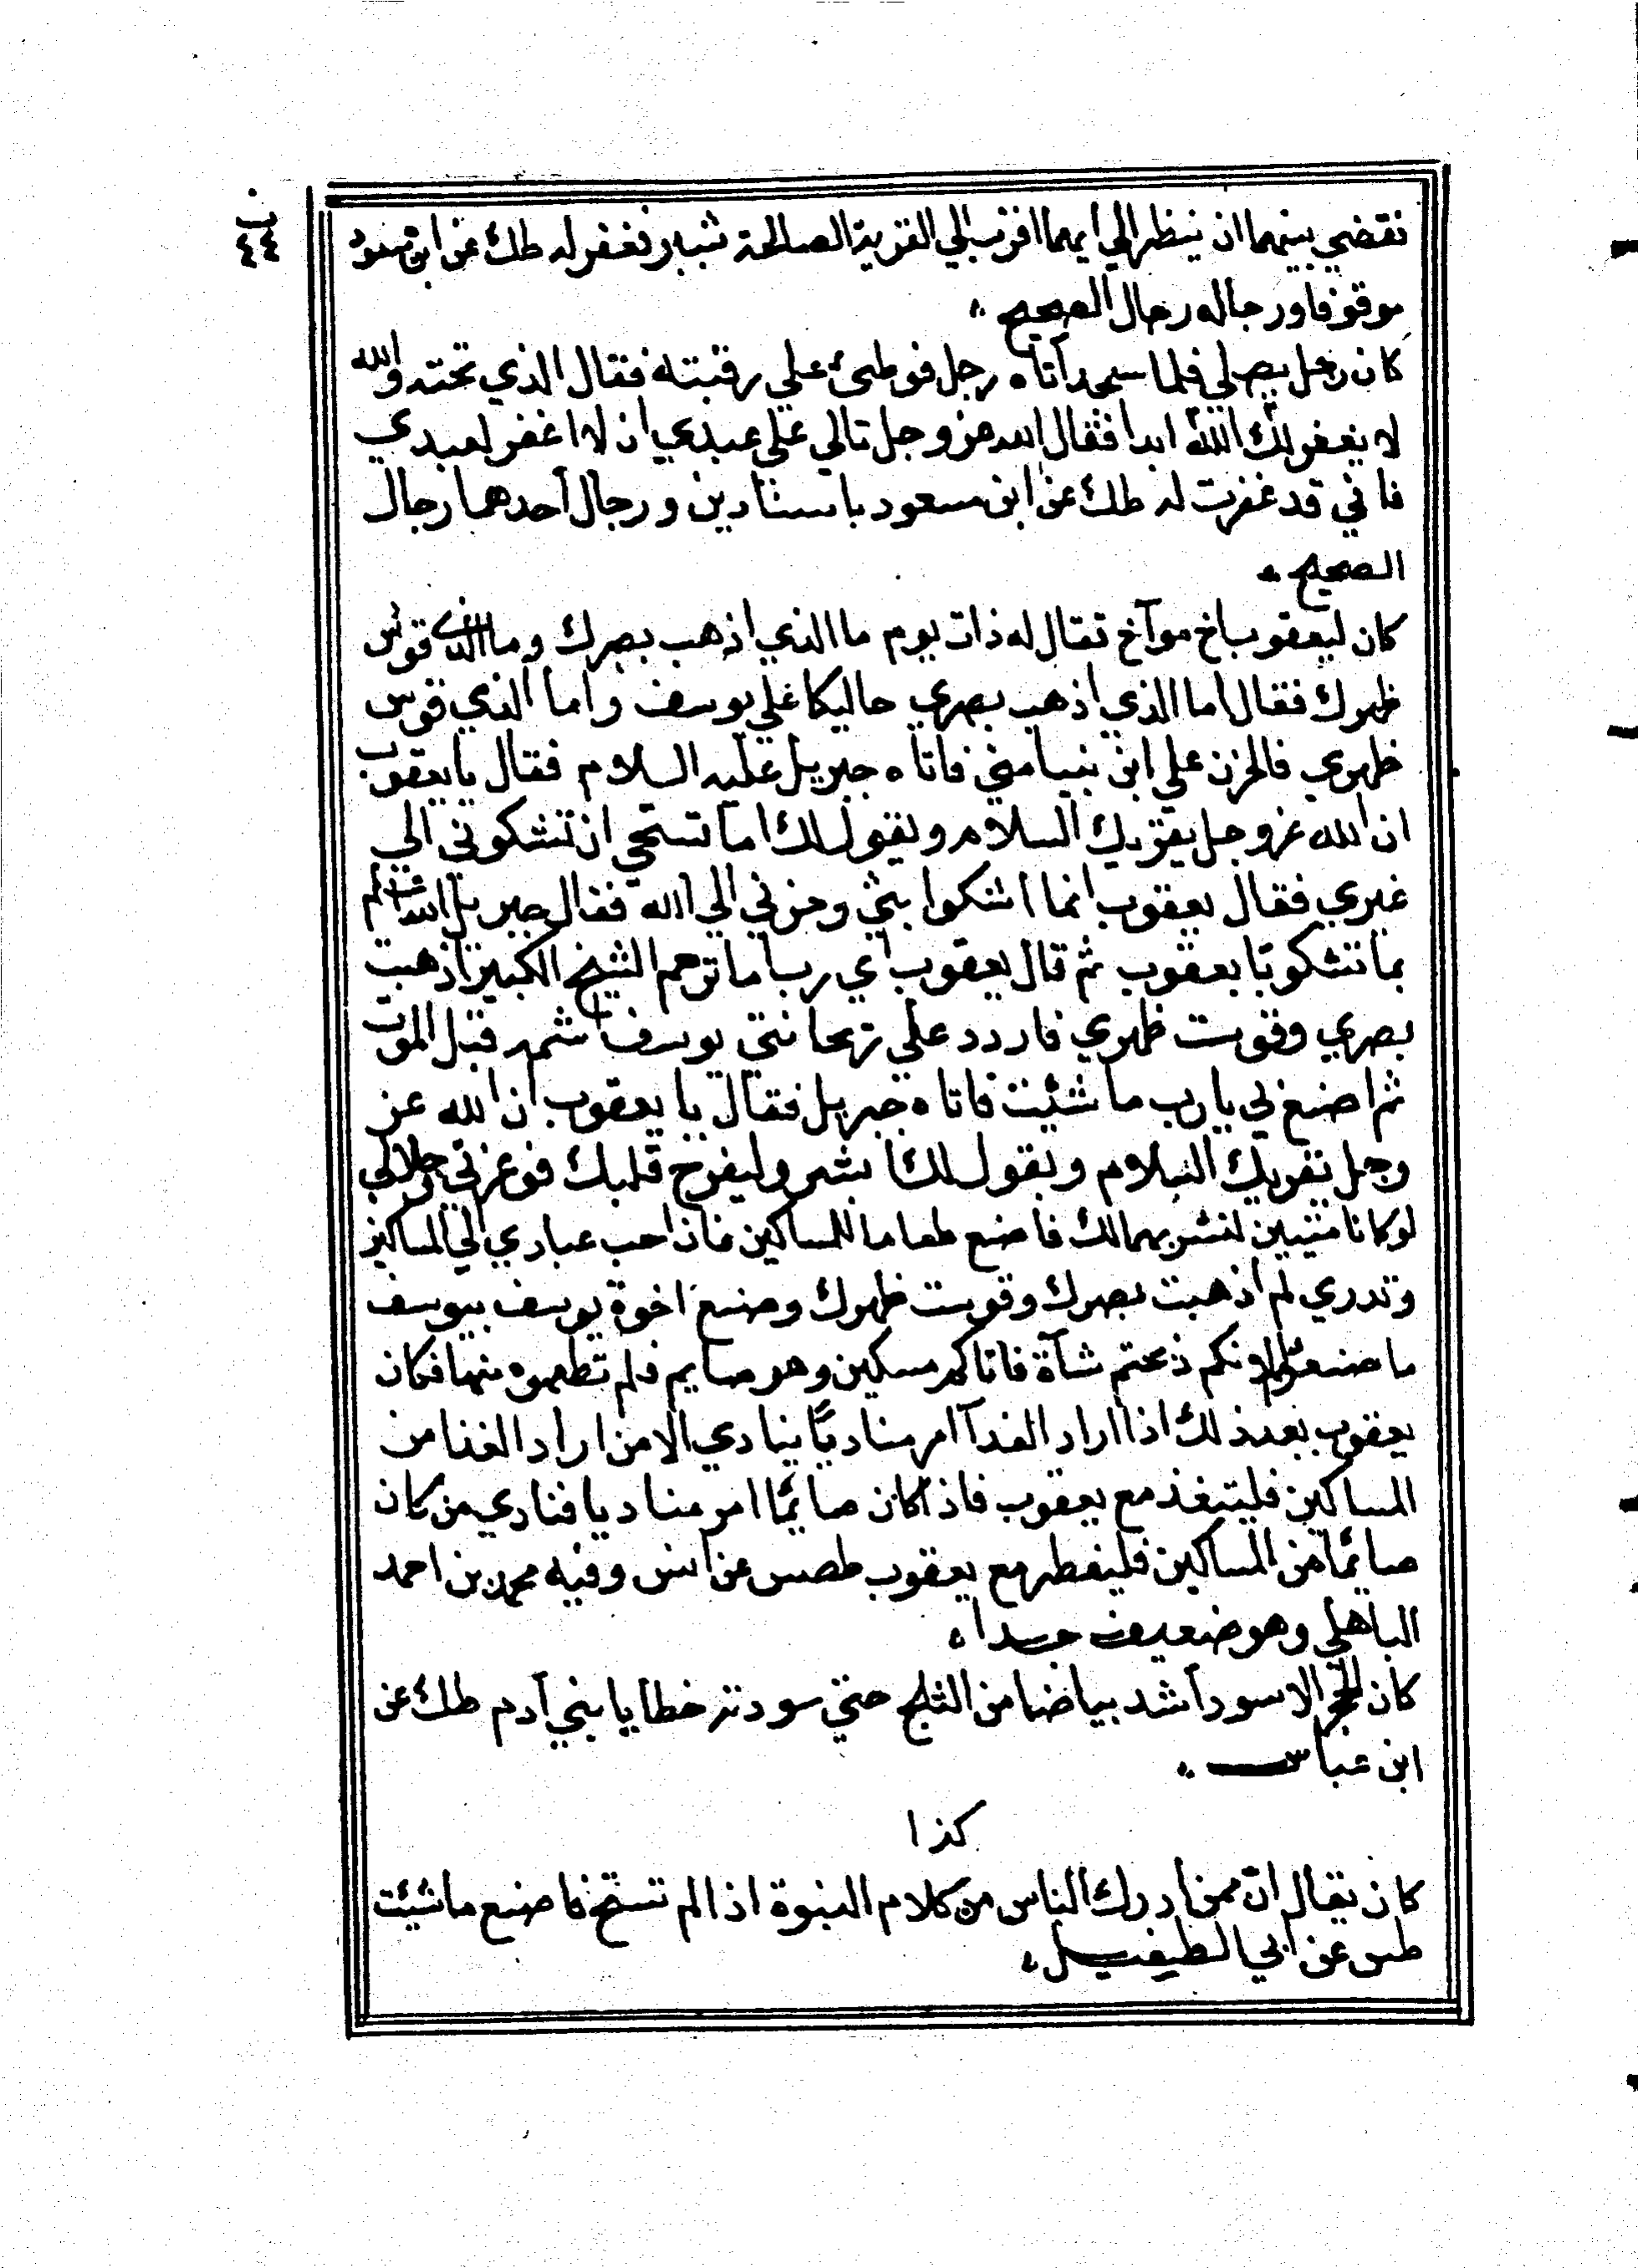 فقضي بينهما ان ينظر الي ايهما اقرب الي القرية الصالحة شبر فغفر له طك عن ابن مسعود
موقوفا ورجاله رجال الصحيح
كان رجل يصلي فلما سجد اتاه رجل فوطئ علي رقبته فقال الذي تحته والله
لا يغفر لك الله ابدا فقال الله عز وجل تالي علي عبدي ان لا اغفر لعبدي
فاني قد غفرت له طك عن ابن مسعود باسنادين ورجال أحدهما رجال
الصحيح
كان ليعقوب اخ موآخ فقال له ذات يوم ما الذي اذهب بصرك وما الذي قوس
ظهرك فقال اما الذي اذهب بصري فالبكا علي يوسف واما الذي قوس
ظهري فالحزن علي ابني بنيامين فاتاه جبريل عليه السلام فقال يا يعقوب
ان الله عز وجل يقريك السلام ويقول لك اما تستحي ان تشكوني الي
غيري فقال يعقوب انما اشكوا بثي وحزني الي الله فقال جبريل الله اعلم
بما تشكو يا يعقوب ثم قال يعقوب اي رب اما ترحم الشيخ الكبير اذهبت
بصري وقوست ظهري فاردد علي ريحانتي يوسف اشمه قبل الموت
ثم اصنع بي يا رب ما شئت فاتاه جبريل فقال يا يعقوب ان الله عز
وجل يقريك السلام ويقول لك ابشر وليفرح قلبك فوعزتي وجلالي
لو كانا ميتين لنشرتهما لك فاصنع طعاما للمساكين فان احب عبادي الي المساكين
وتدري لم اذهبت بصرك وقوست ظهرك وصنع اخوة يوسف بيوسف
ما صنعوا لانكم ذبحتم شاة فاتاكم مسكين وهو صايم فلم تطعموه منها فكان
يعقوب بعد ذلك اذا اراد الغدآ امر مناديًا ينادي الا من اراد الغذا من
المساكين فليتغذ مع يعقوب فاذا كان صائما امر مناديا فنادي من كان
صائما من المساكين فليفطر مع يعقوب طصس عن انس وفيه محمد بن احمد
الباهلي وهو ضعيف جدا
كان الحجر الاسود أشد بياضا من الثلج حتي سودته خطايا بني آدم طك عن
ابن عباس
كذا
كان يقال ان ممن ادرك الناس من كلام النبوة اذا لم تستح فاصنع ما شئت
طس عن ابي الطفيل